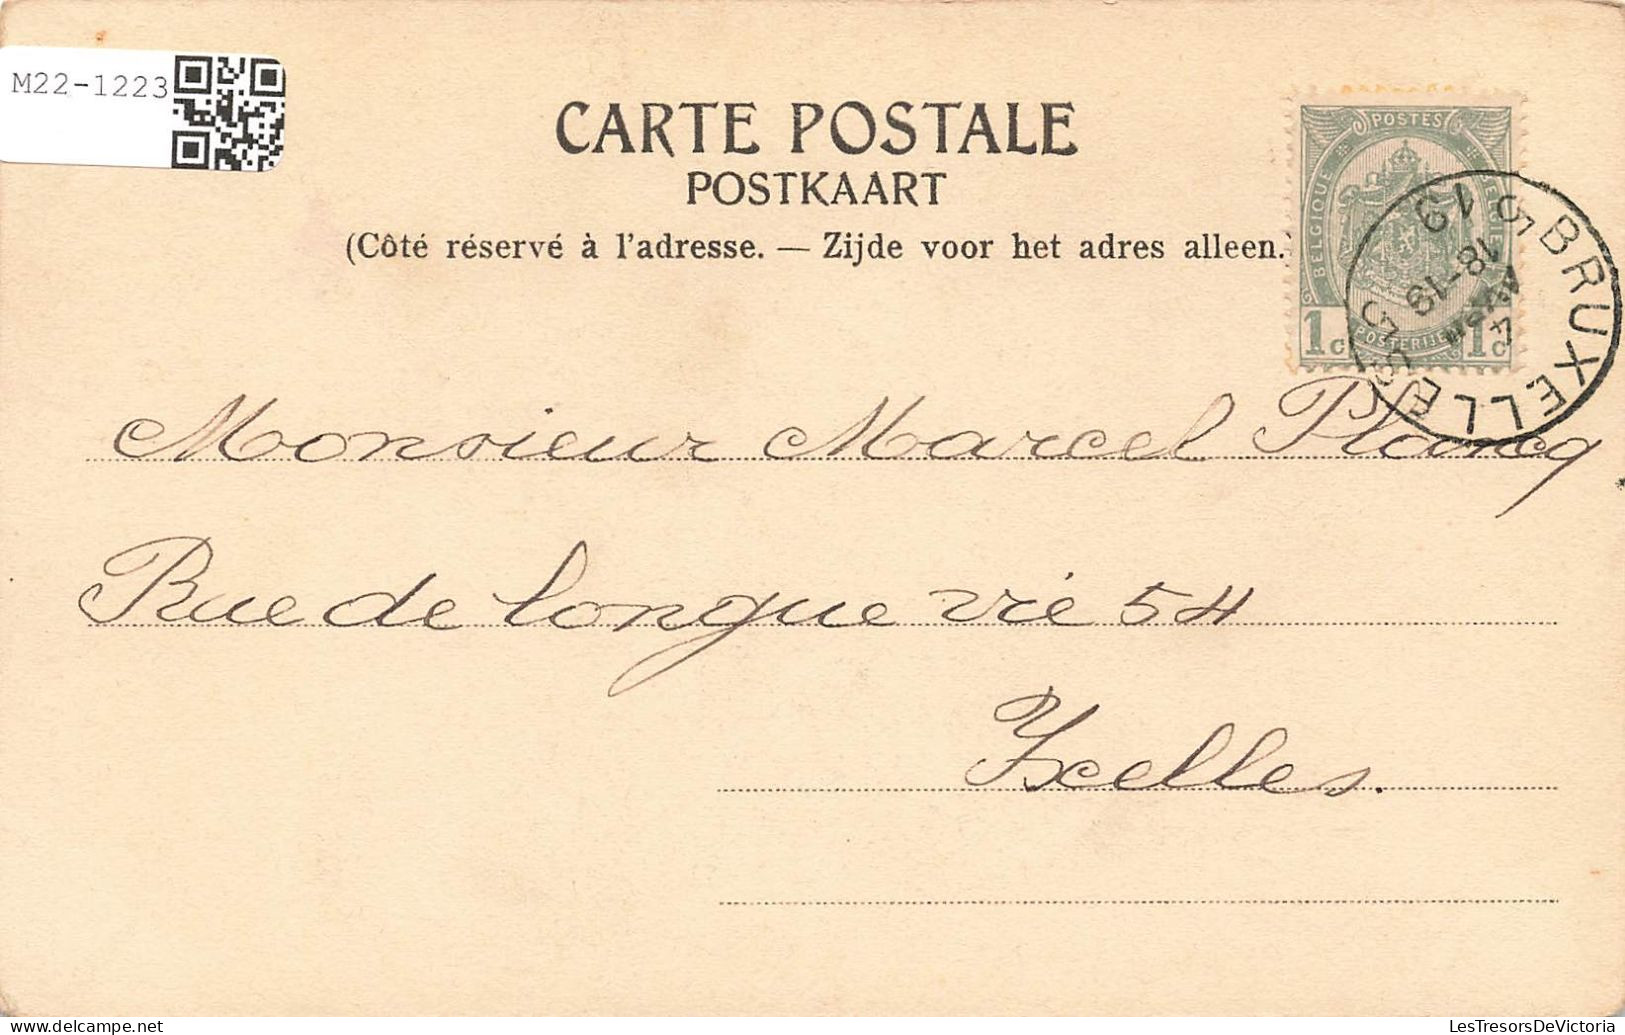 M22-1223
CARTE POSTALE
POSTKAART
(Côté réservé à l'adresse. — Zijde voor het adres alleen.
POSTES
BELGIQUE
1c POSTERIJEN 1c
BRUXELLES 5
4
18-19
19
Monsieur Marcel Plancq
Rue de longue vie 54
Ixelles.
LesTresorsDeVictoria
www.delcampe.net